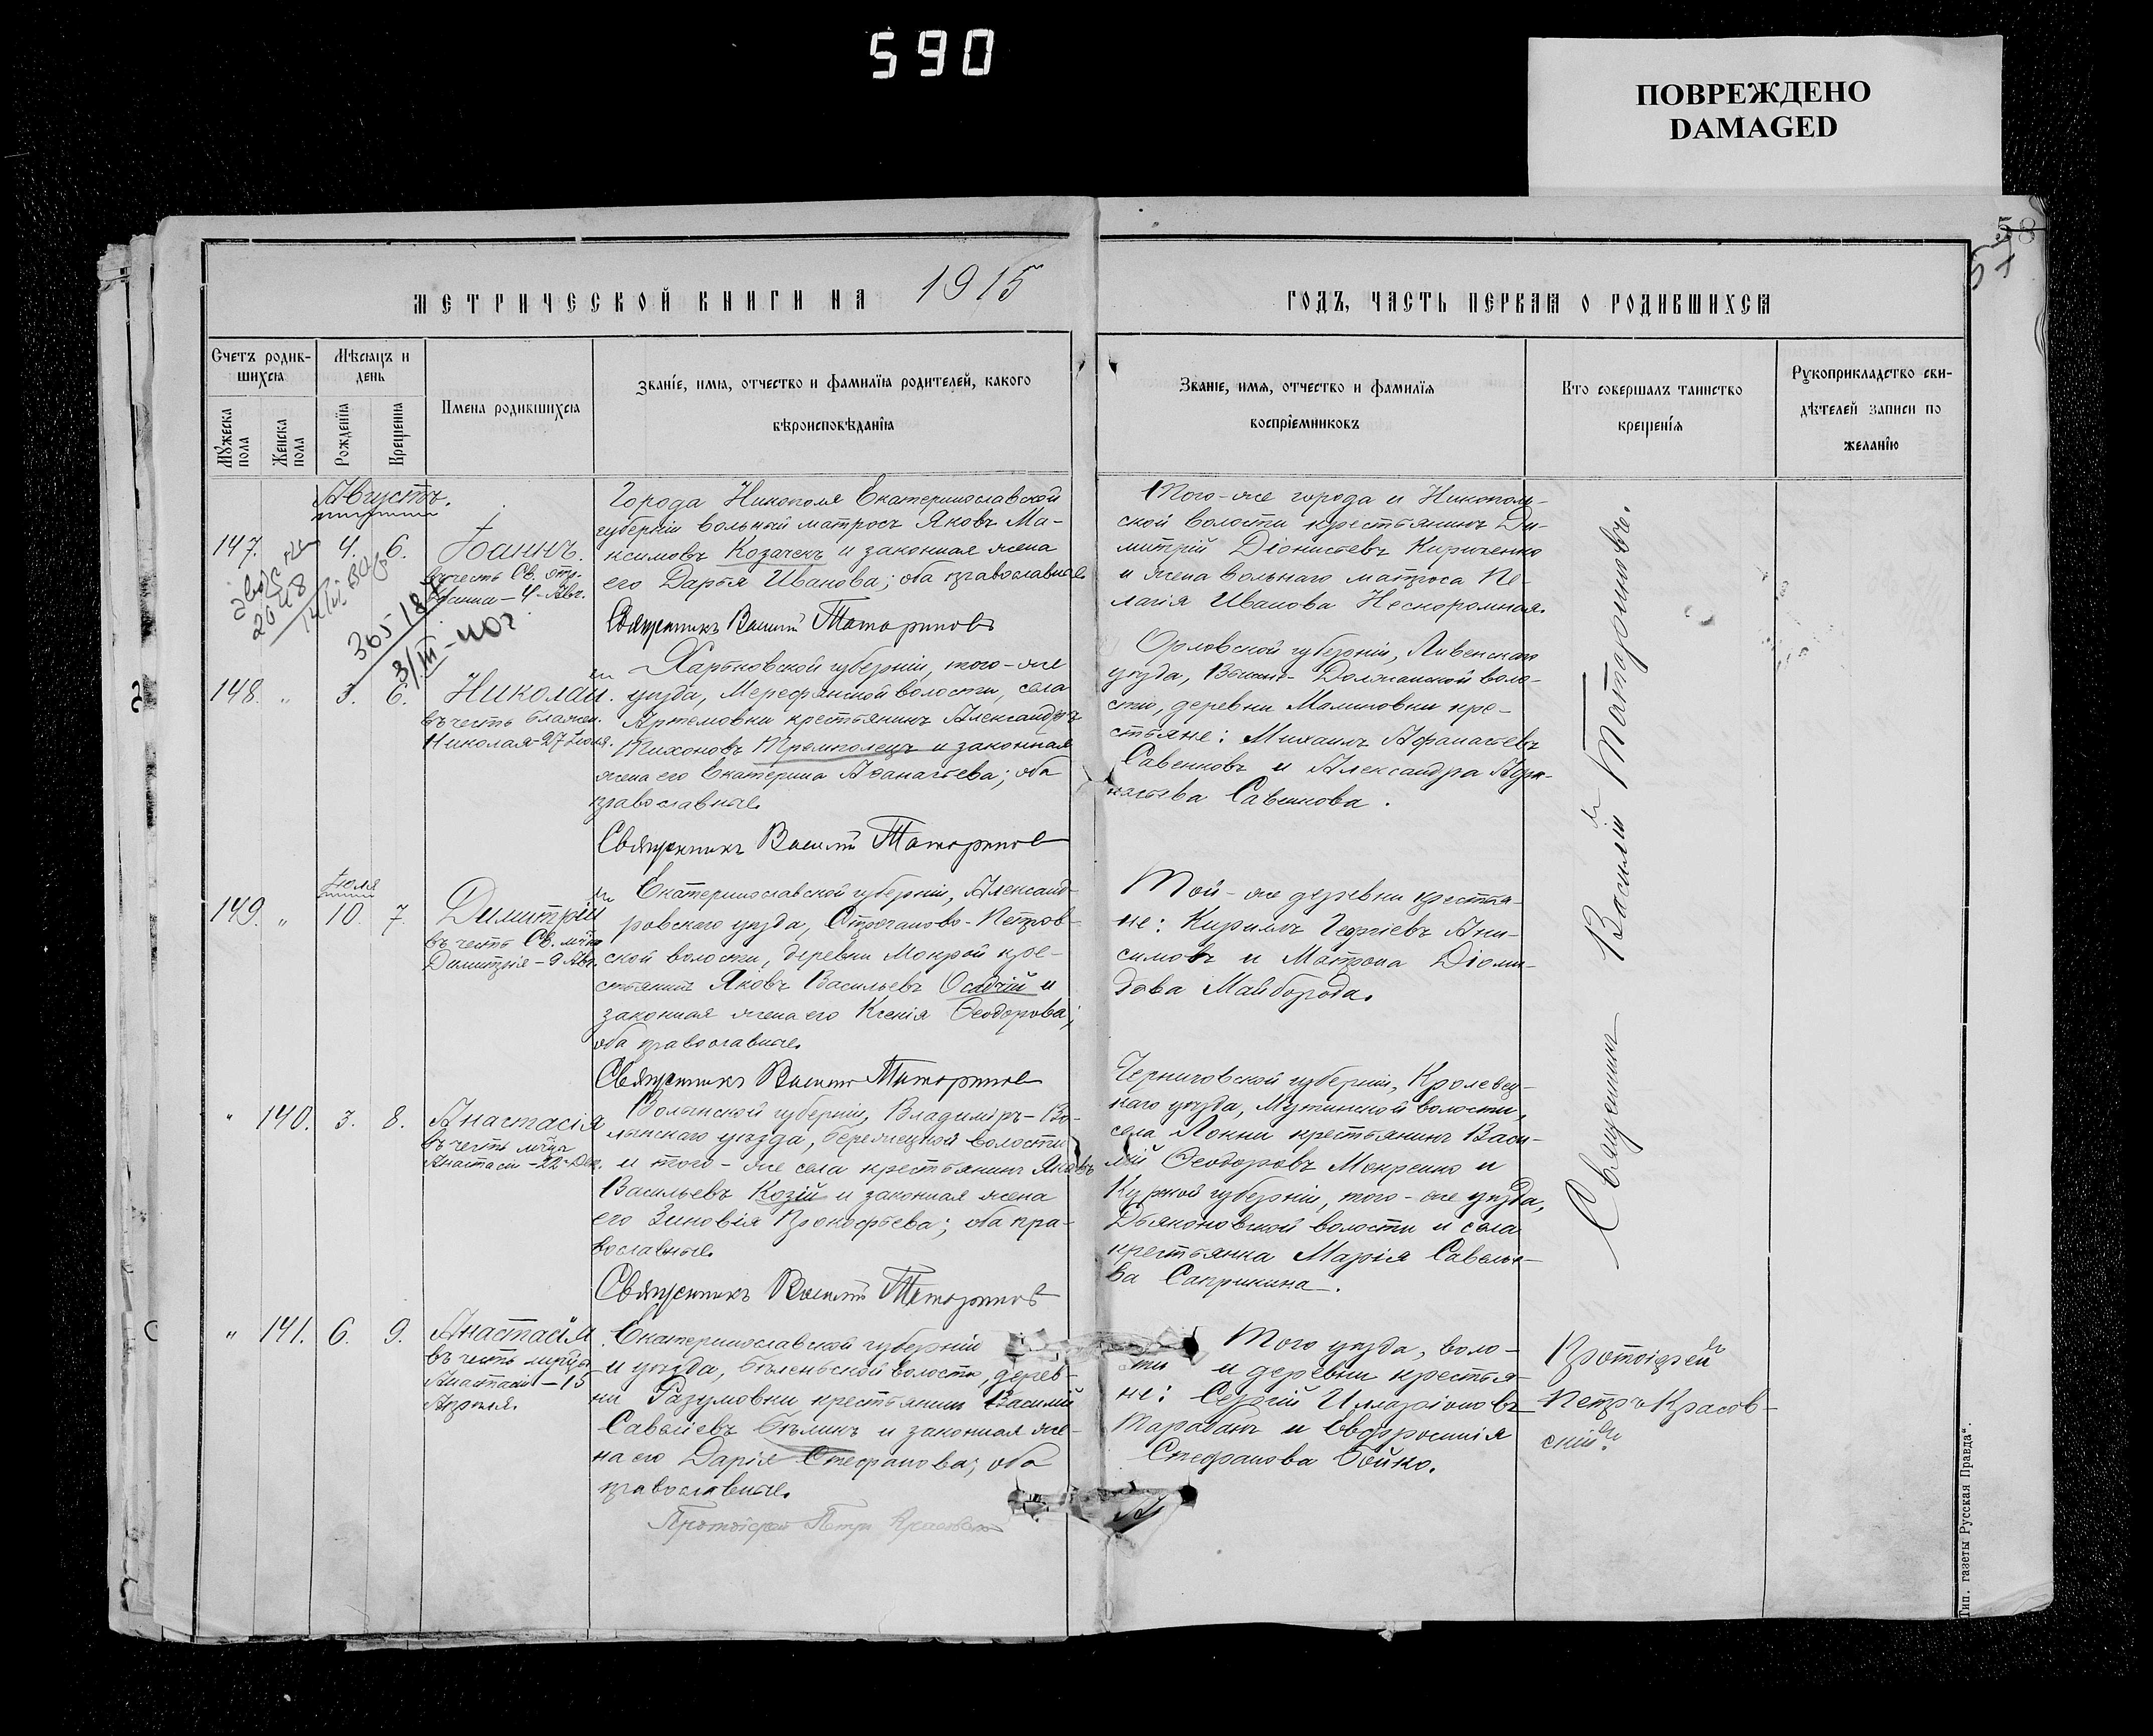 590
ПОВРЕЖДЕНО
DAMAGED
58
57
МЕТРИЧЕСКОЙ КНИГИ НА 1915
ГОДЪ, ЧАСТЬ ПЕРВАЯ О РОДИВШИХСЯ
Счетъ родив-
шихся
Мѣсяцъ и
день
Мужеска пола
Женска пола
Рожденія
Крещенія
Имена родившихся
Званіе, имя, отчество и фамилія родителей, какого
вѣроисповѣданія
Званіе, имя, отчество и фамилія
воспріемниковъ
Кто совершалъ таинство
крещенія
Рукоприкладство сви-
дѣтелей записи по
желанію
Августъ.
147. 4. 6.
Іоаннъ.
въ честь Св.
Іоанна - 4 Авг.
2048
365184
3/III-
Города Никополя Екатеринославской
губерніи вольный матросъ Яковъ Ма-
ксимовъ Козаченъ и законная жена
его Дарья Иванова; оба православные
Священникъ Василій Татариновъ
Того-же города и Никополь-
ской волости крестьянинъ Ди-
митрій Діонисіевъ Кириченко
и жена вольнаго матроса Пе-
лагія Иванова Нескоромная.
148. " 3. 6.
Николай.
въ честь блажен.
Николая - 27 Іюля.
Харьковской губерніи, того-же
уѣзда, Мерефянской волости, села
Артемовки крестьянинъ Александръ
Тихоновъ Тромполецъ и законная
жена его Екатерина Аѳанасьева; оба
православные.
Священникъ Василій Татариновъ
Орловской губерніи, Ливенскаго
уѣзда, Должанской воло-
сти, деревни Малиновки кре-
стьяне: Михаилъ Афанасьевъ
Савенковъ и Александра Афа-
насьева Савенкова.
Іюля
149. " 10. 7.
Димитрій
въ честь Св. мчка
Димитрія - 9 Авг.
Екатеринославской губерніи, Александ-
ровскаго уѣзда, Строганово-Петров-
ской волости, деревни Мокрой кре-
стьянинъ Яковъ Васильевъ Осадчій и
законная жена его Ксенія Ѳеодорова;
оба православные.
Священникъ Василій Татариновъ
Той-же деревни крестья-
не: Кириллъ Георгіевъ Ани-
симовъ и Матрона Діоми-
дова Майборода.
" 140. 3. 8.
Анастасія
въ честь мчцы
Анастасіи - 22 Дек.
Волынской губерніи, Владиміръ-Во-
лынскаго уѣзда, Бережецкой волости
и того-же села крестьянинъ Яковъ
Васильевъ Козій и законная жена
его Зиновія Прокофьева; оба пра-
вославные.
Священникъ Василій Татариновъ
Черниговской губерніи, Кролевец-
каго уѣзда, Мутинской волости,
села Локни крестьянинъ Васи-
лій Ѳеодоровъ Мокренко и
Курской губерніи, того-же уѣзда,
Дьяконовской волости и села
крестьянка Марія Савелье-
ва Сапрыкина.
Священникъ Василій Татариновъ.
" 141. 6. 9.
Анастасія
въ честь мчцы
Анастасіи - 15
Апрѣля.
Екатеринославской губерніи
и уѣзда, Бѣленьской волости, дерев-
ни Разумовки крестьянинъ Василій
Саввіевъ Бѣлинъ и законная же-
на его Дарія Стефанова; оба
православные.
Протоіерей Петръ Красовскій
Того уѣзда, воло-
сти и деревни крестья-
не: Сергій Илларіоновъ
Тарабанъ и Евфросинія
Стефанова Бойко.
Протоіерей
Петръ Красов-
скій.
Тип. газеты Русская Правда".